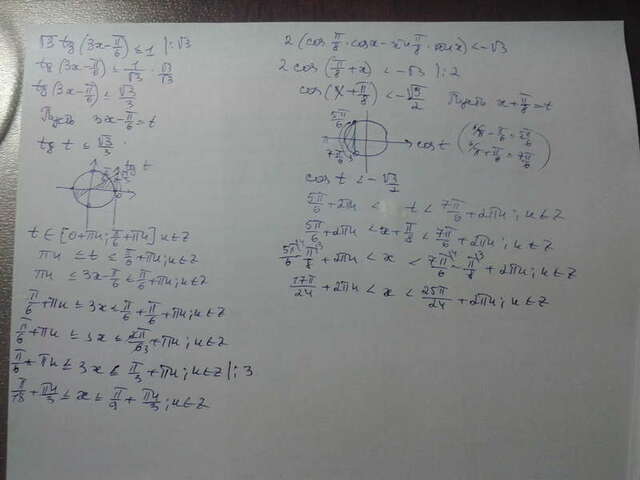 √3 tg (3x - π/6) ≤ 1 |:√3
tg (3x - π/6) ≤ 1/√3 · √3/√3
tg (3x - π/6) ≤ √3/3
Пусть 3x - π/6 = t
tg t ≤ √3/3
t ∈ [0+πn; π/6+πn] n∈Z
πn ≤ t ≤ π/6 + πn; n∈Z
πn ≤ 3x - π/6 ≤ π/6 + πn; n∈Z
π/6 + πn ≤ 3x ≤ π/6 + π/6 + πn; n∈Z
π/6 + πn ≤ 3x ≤ 2π/6 3 + πn; n∈Z
π/6 + πn ≤ 3x ≤ π/3 + πn; n∈Z |:3
π/18 + πn/3 ≤ x ≤ π/9 + πn/3; n∈Z
2 (cos π/8 · cosx - sin π/8 · sin x) < -√3
2 cos (π/8 + x) < -√3 |:2
cos (x + π/8) < -√3/2 Пусть x + π/8 = t
5π/6
7π/6
cos t
cos t < -√3/2
5π/6 + 2πn < t < 7π/6 + 2πn; n∈Z
5π/6 + 2πn < x + π/8 < 7π/6 + 2πn; n∈Z
5π/6 - π/8 + 2πn < x < 7π/6 - π/8 + 2πn; n∈Z
17π/24 + 2πn < x < 25π/24 + 2πn; n∈Z